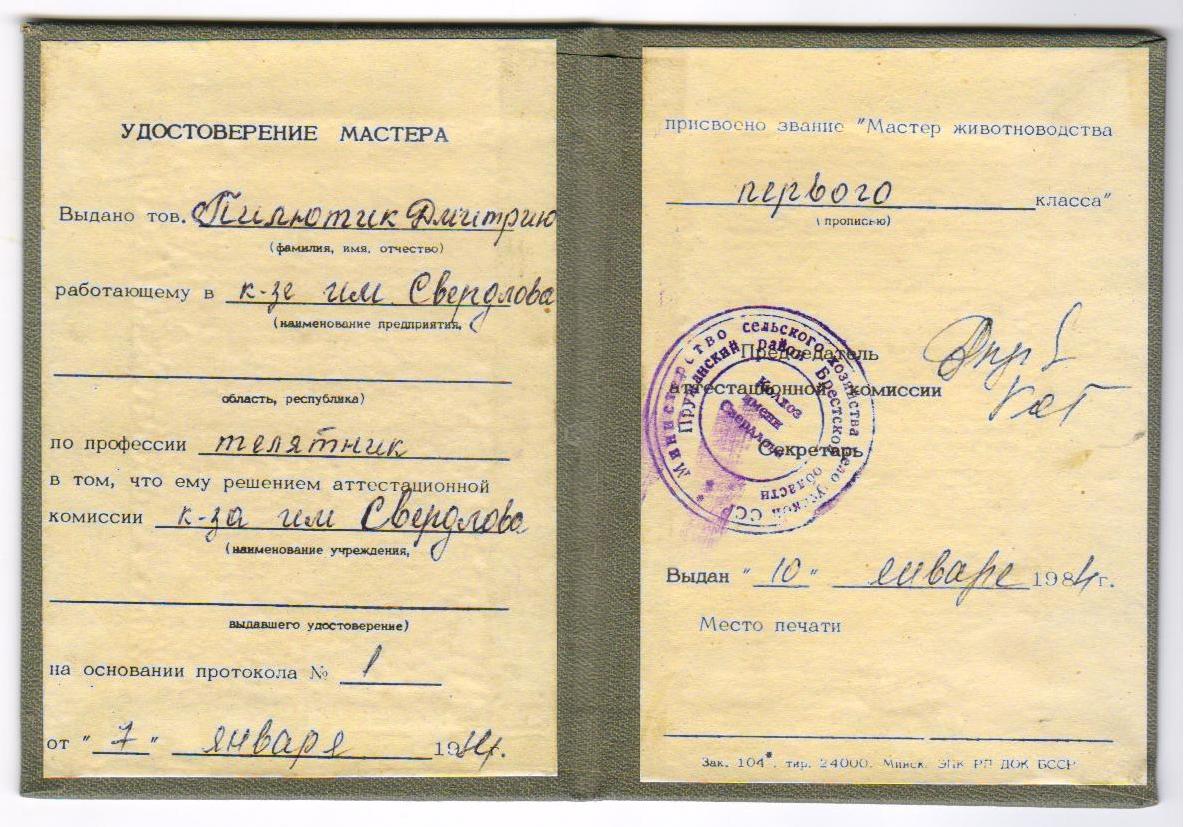 УДОСТОВЕРЕНИЕ МАСТЕРА
Выдано тов. Пилютик Дмитрию
(фамилия, имя, отчество)
работающему в к-зе им. Свердлова
(наименование предприятия,
область, республика)
по профессии телятник
в том, что ему решением аттестационной
комиссии к-за им Свердлова
(наименование учреждения,
выдавшего удостоверение)
на основании протокола № 1
от "7" января 1984г.
присвоено звание "Мастер животноводства
первого класса"
(прописью)
Председатель
аттестационной комиссии
Секретарь
Министерство сельского хозяйства
СССР
Пружанский район Брестской
области
Колхоз
имени
Свердлова
Выдан "10" январе 1984г.
Место печати
Зак. 104*. тир. 24000. Минск. ЭПК РП ДОК БССР